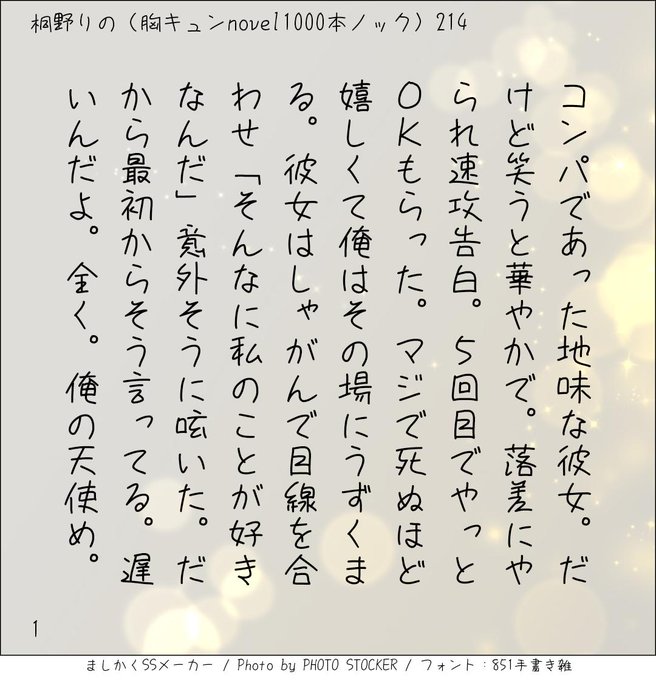 桐野りの（胸キュンnovel1000本ノック）214
コンパであった地味な彼女。だ
けど笑うと華やかで。落差にや
られ速攻告白。５回目でやっと
ＯＫもらった。マジで死ぬほど
嬉しくて俺はその場にうずくま
る。彼女はしゃがんで目線を合
わせ「そんなに私のことが好き
なんだ」意外そうに呟いた。だ
から最初からそう言ってる。遅
いんだよ。全く。俺の天使め。
1
ましかくSSメーカー / Photo by PHOTO STOCKER / フォント：851手書き雑